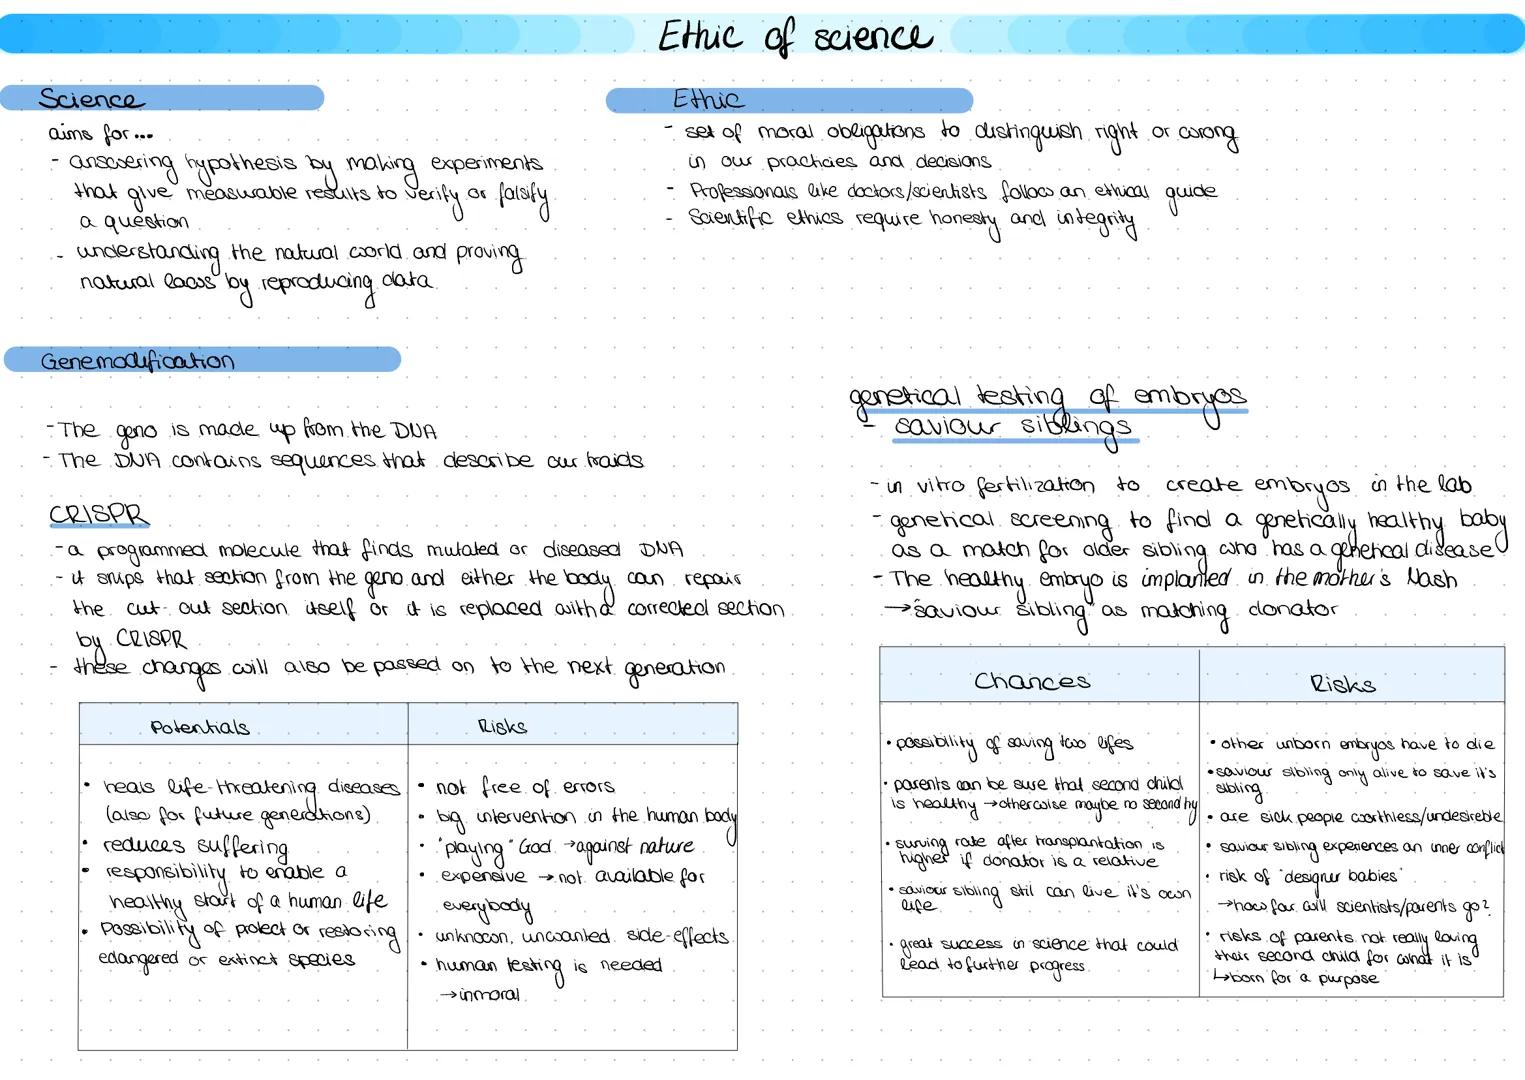 Ethic of science
Science
aims for...
- answering hypothesis by making experiments
that give measurable results to verify or falsify
a question
- understanding the natural world and proving
natural laws by reproducing data
Ethic
- set of moral obligations to distinguish right or wrong
in our practicies and decisions
- Professionals like doctors/scientists follow an ethical guide
- Scientific ethics require honesty and integrity
Genemodification
- The geno is made up from the DNA
- The DNA contains sequences that describe our traids
CRISPR
- a programmed molecule that finds mutated or diseased DNA
- it snips that section from the geno and either the body can repair
the cut-out section itself or it is replaced with a corrected section
by CRISPR
- these changes will also be passed on to the next generation
Potentials
• heals life-threatening diseases
(also for future generations)
• reduces suffering
• responsibility to enable a
healthy start of a human life
• Possibility of protect or restoring
edangered or extinct species
Risks
• not free of errors
• big intervention in the human body
• "playing" God → against nature
• expensive → not available for
everybody
• unknown, unwanted side-effects
• human testing is needed
→ inmoral
genetical testing of embryos
- saviour siblings
- in vitro fertilization to create embryos in the lab
- genetical screening to find a genetically healthy baby
as a match for older sibling who has a genetical disease
- The healthy embryo is implanted in the mother's
→ "saviour sibling" as matching donator
Chances
• possibility of saving two lifes
• parents can be sure that second child
is healthy → otherwise maybe no second try
• surving rate after transplantation is
higher if donator is a relative
• saviour sibling still can live it's own
life
• great success in science that could
lead to further progress
Risks
• other unborn embryos have to die
• saviour sibling only alive to save it's
sibling
• are sick people worthless/undesireble
• saviour sibling experiences an inner conflict
• risk of "designer babies"
→ how far will scientists/parents go?
• risks of parents not really loving
their second child for what it is
↳ born for a purpose